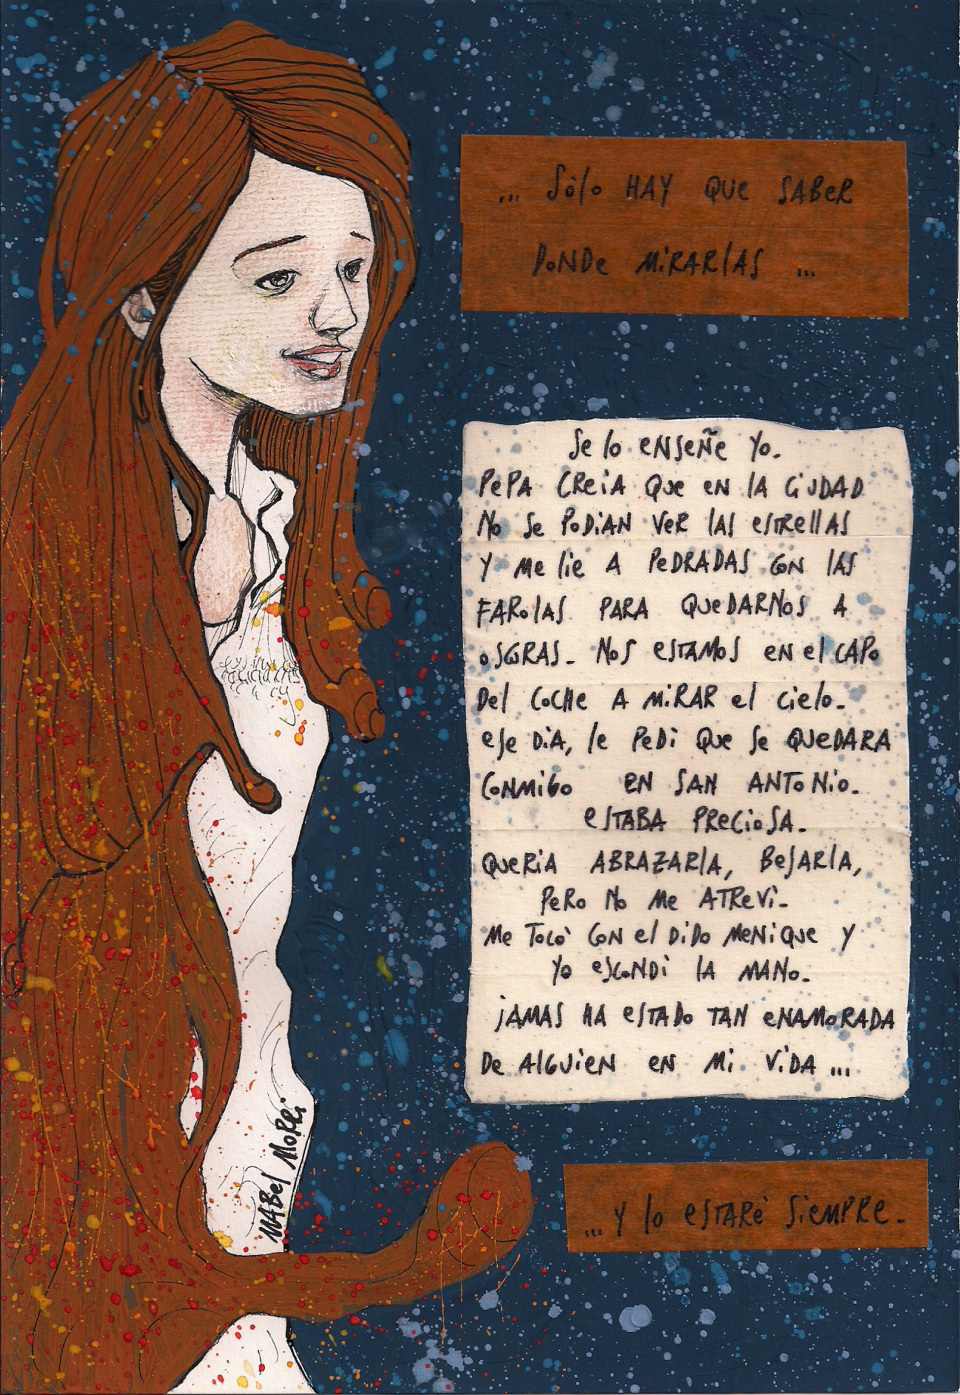 ... Sólo HAY QUE SABER
DONDE MIRARLAS ...
Se lo enseñe yo.
PEPA CREIA QUE EN LA CIUDAD
NO SE PODIAN VER LAS ESTRELLAS
Y ME LIE A PEDRADAS CON LAS
FAROLAS PARA QUEDARNOS A
OSCURAS. NOS ESTAMOS EN EL CAPO
DEL COCHE A MIRAR EL CIELO.
ESE DIA, LE PEDI QUE SE QUEDARA
CONMIGO EN SAN ANTONIO.
ESTABA PRECIOSA.
QUERIA ABRAZARLA, BESARLA,
PERO NO ME ATREVI.
ME TOCÓ CON EL DIDO MENIQUE Y
YO ESCONDI LA MANO.
JAMAS HA ESTADO TAN ENAMORADA
DE ALGUIEN EN MI VIDA ...
... Y LO ESTARÉ SIEMPRE.
MABEL MORRI